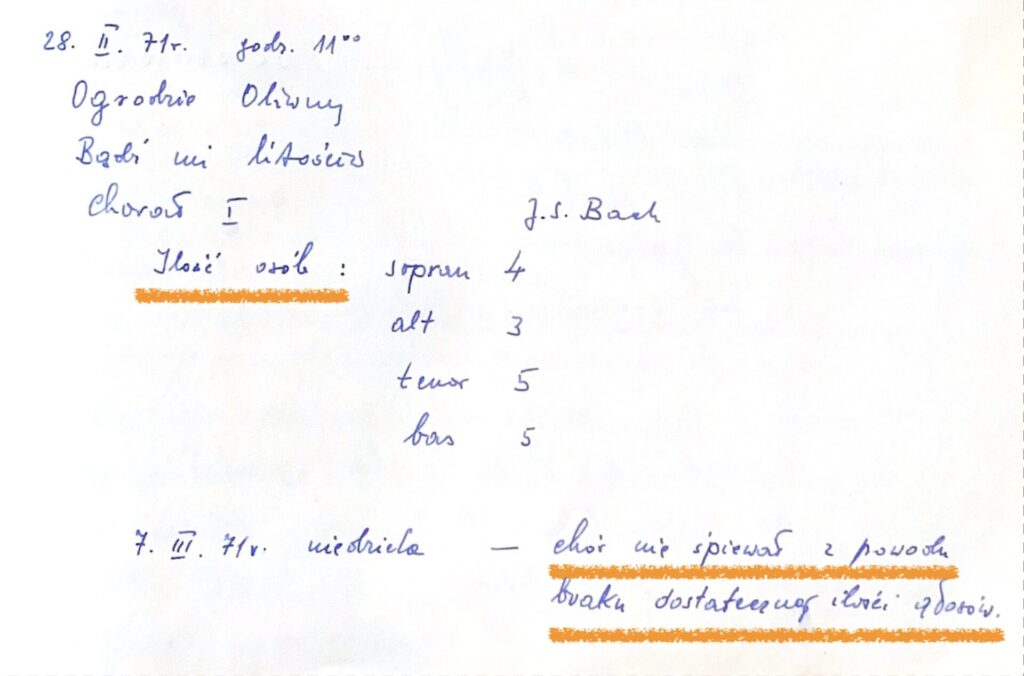 28. II. 71r. godz. 11⁰⁰
Ogrodzie Oliwny
Bądź mi litościw
Chorał I J.S. Bach
Ilość osób : sopran 4
alt 3
tenor 5
bas 5
7. III. 71r. niedziela — chór nie śpiewał z powodu
braku dostatecznej ilości głosów.